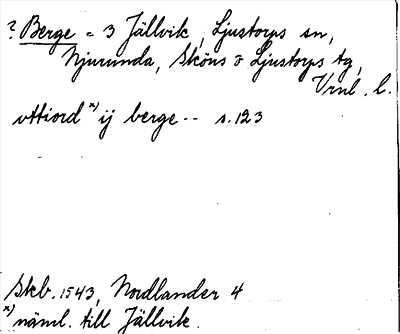 ? Berge = 3 Jällvik, Ljustorps sn,
Njurunda, Sköns o Ljustorps tg,
Vrnl. l.
vttiord x) ij berge -- s. 123
Skb. 1543, Nordlander 4
x) näml. till Jällvik.